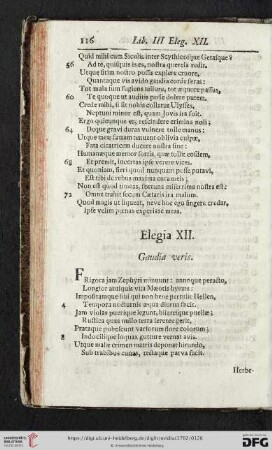 116 Lib. III Eleg. XII.
Quid mihi cum Siculis inter Scythicosque Getasque?
56 Ad te, quisquis is es, nostra querela redit.
Utque sitim nostro possis explere cruore,
Quantaque vix avido gaudia corde feras:
Tot mala sum fugiens tellure, tot æquore passus,
60 Te quoque ut auditis posse dolere putem.
Crede mihi, si sit nobis collatus Ulysses,
Neptuni minor est, quam Jovis ira fuit.
Ergo quicumque es, rescindere crimina noli;
64 Deque gravi duras vulnere tolle manus:
Utque meæ famam tenuent oblivia culpæ,
Fata cicatricem ducere nostra sine:
Humanæque memor sortis, quæ tollit eosdem,
68 Et premit, incertas ipse verere vices.
Et quoniam, fieri quod nunquam posse putavi,
Est tibi de rebus maxima cura meis;
Non est quod timeas, fortuna miserrima nostra est:
72 Omne trahit secum Cæsaris ira malum.
Quod magis ut liqueat, neve hoc ego fingere credar,
Ipse velim pœnas experiare meas.
Elegia XII.
Gaudia veris.
Frigora jam Zephyri minuunt: annoque peracto,
Longior antiquis visa Mæotis hyems:
Impositamque sibi qui non bene pertulit Hellen,
4 Tempora nocturnis æqua diurna facit.
Jam violas puerique legunt, hilaresque puellæ;
Rustica quas nullo terra serente gerit,
Prataque pubescunt variorum flore colorum;
8 Indocilique loquax gutture vernat avis.
Utque malæ crimen matris deponat hirundo,
Sub trabibus cunas, tectaque parva facit.
Herbe-
https://digi.ub.uni-heidelberg.de/diglit/ovidius1702/0126
© Universitätsbibliothek Heidelberg
gefördert durch die
DFG